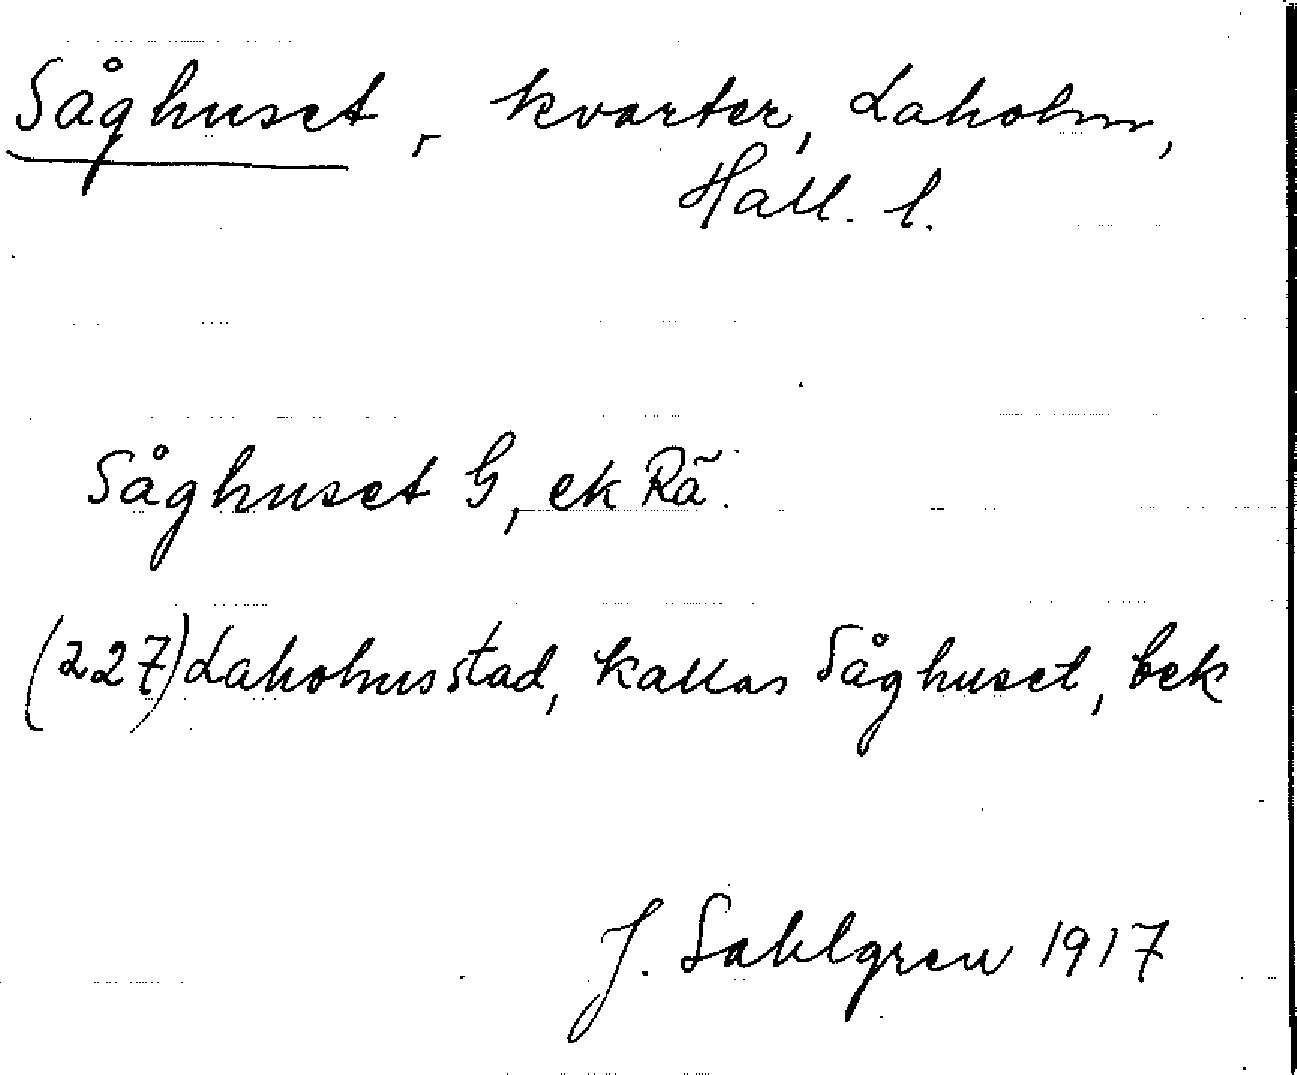 Såghuset, kvarter, Laholm,
Hall. l.
Såghuset G, ek Rã.
(227) Laholms stad, kallas Såghuset, bek
J. Sahlgren 1917